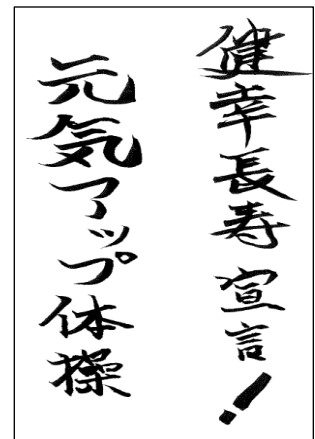 健幸長寿宣言！
元気アップ体操